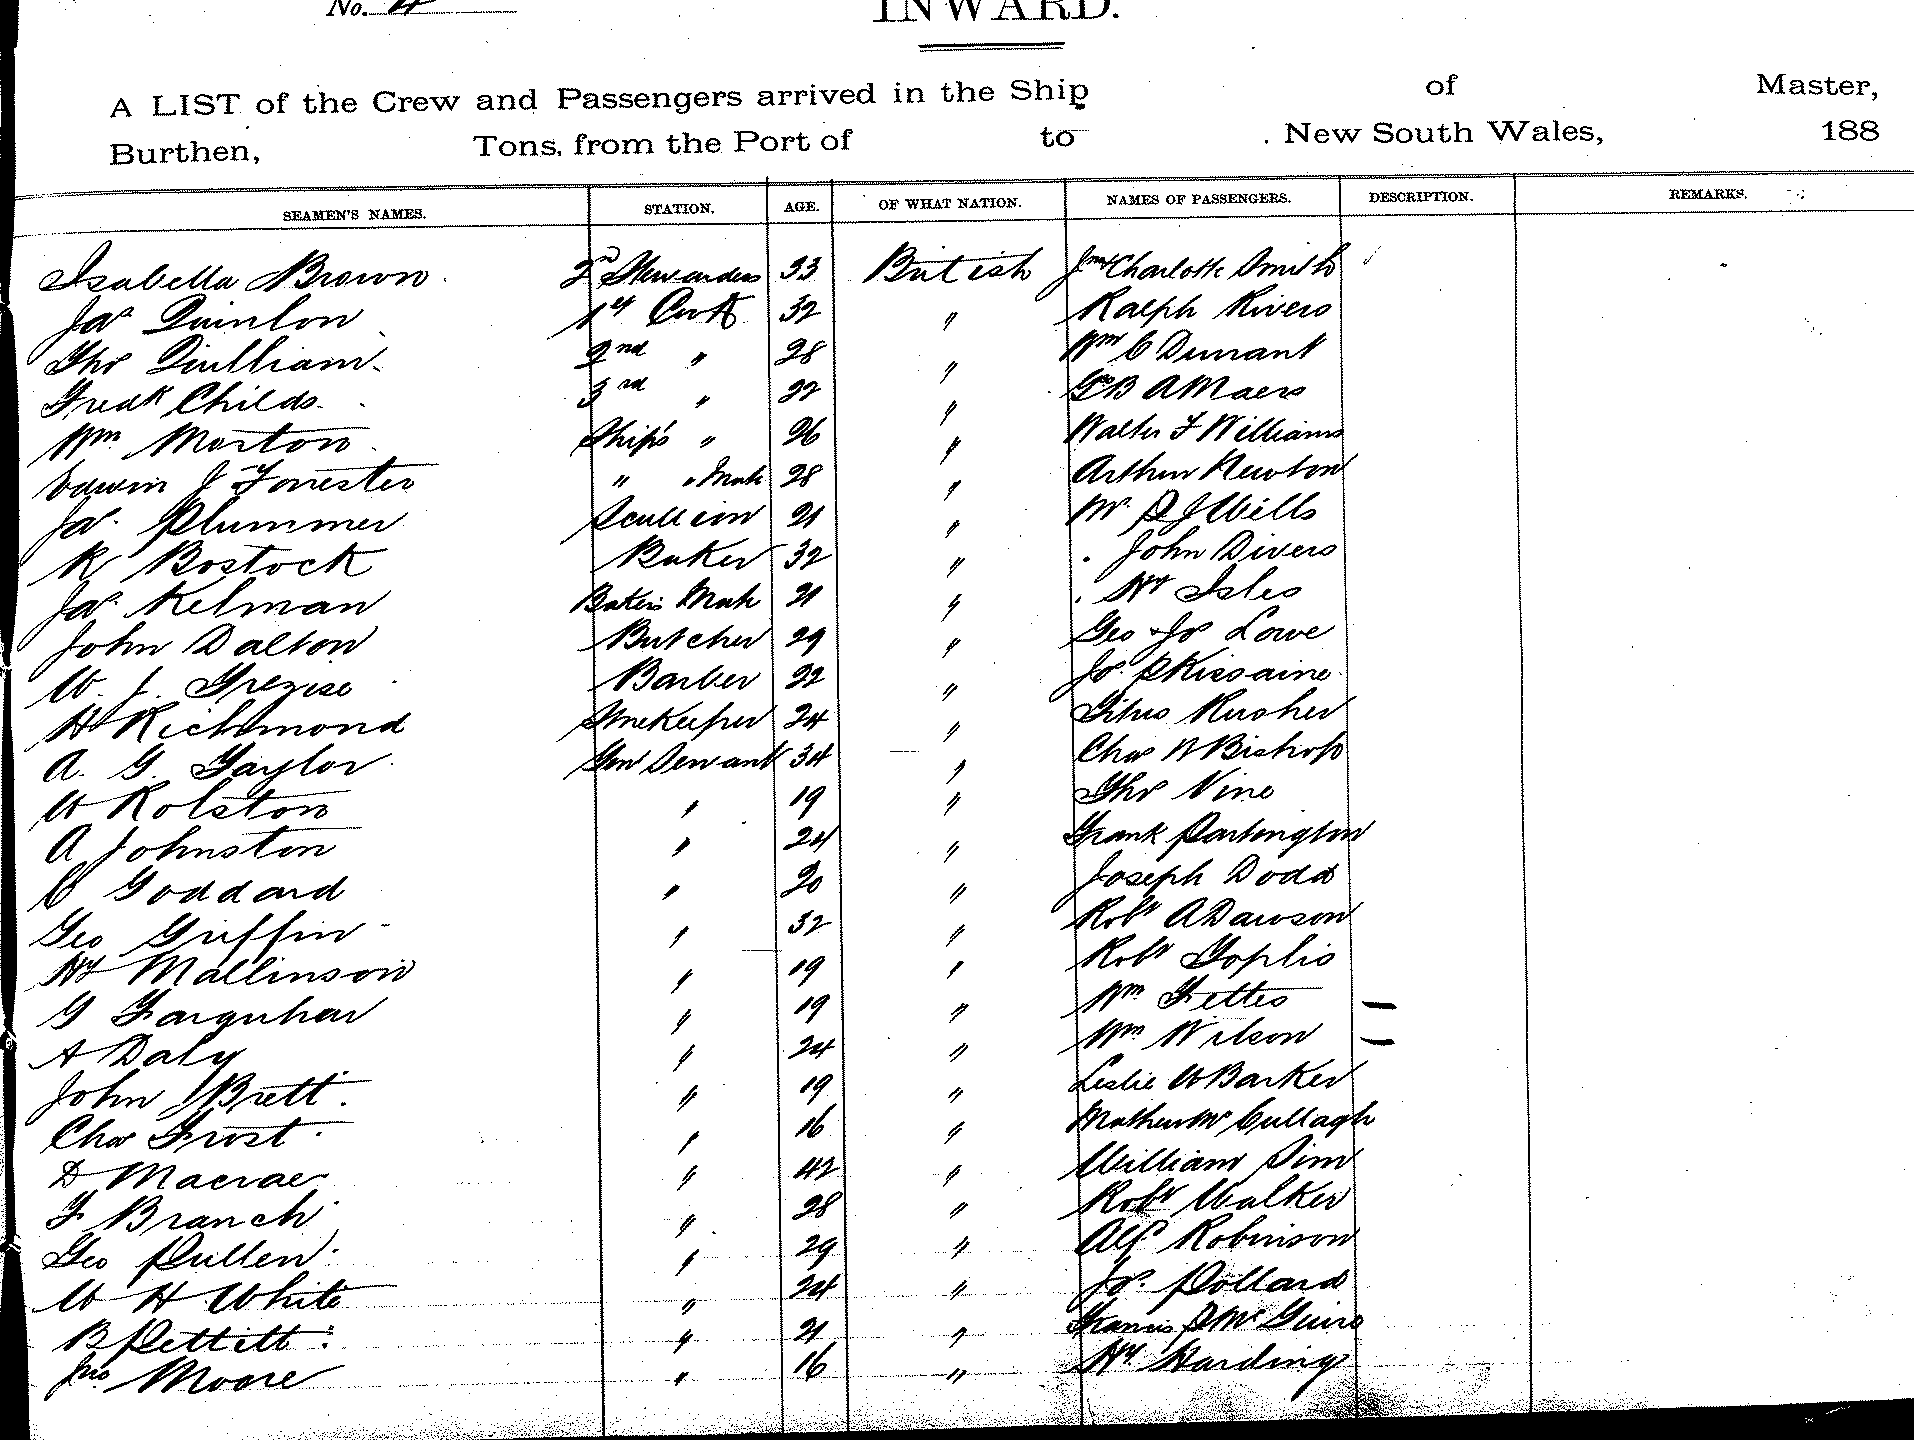 No. 4
INWARD.
A LIST of the Crew and Passengers arrived in the Ship of Master,
Burthen, Tons, from the Port of to New South Wales, 188
SEAMEN'S NAMES. STATION. AGE. OF WHAT NATION. NAMES OF PASSENGERS. DESCRIPTION. REMARKS.
Isabella Brown 33 British Charlotte Smith
Jas Quinlon 1st Cook 32 " Ralph Rivers
Thos Quilliam 2nd " 28 " Wm C Durrant
Fredk Childs 3rd " 22 " A Maers
Wm Morton Ship's " 26 " Walter F Williams
Edwin J Forrester " " Mate 28 " Arthur Newton
Jas. Plummer Scullion 21 " Mr. P J Wills
R Bostock Baker 32 " John Divers
Jas. Kelman Bakers Mate 21 " Hy Isles
John Dalton Butcher 29 " Geo Jos Lowe
W. J. Grezise Barber 22 " Jos. P Kissaine
H Richmond Storekeeper 24 " Titus Rusher
A. G. Taylor Genl Servant 34 " Chas W Bishop
W Rolston " 19 " Thos Vine
A Johnston " 24 " Frank Partington
C Goddard " 20 " Joseph Dodd
Geo Griffin " 32 " Robt A Dawson
Hy Mallinson " 19 " Robt Toplis
G Farquhar " 19 " Wm Fettes
A Daly " 24 " Wm Wilson
John Brett " 19 " Leslie W Barker
Chas Frost " 16 " Mathew Mc Cullagh
D Macrae " 42 " William Sim
F Branch " 28 " Robt Walker
Geo Pullen " 29 " Alf. Robinson
W H White " 24 " Jos. Pollard
B Pettitt " 21 " Francis P Mc Guire
Jno Moore " 16 " Hy Harding